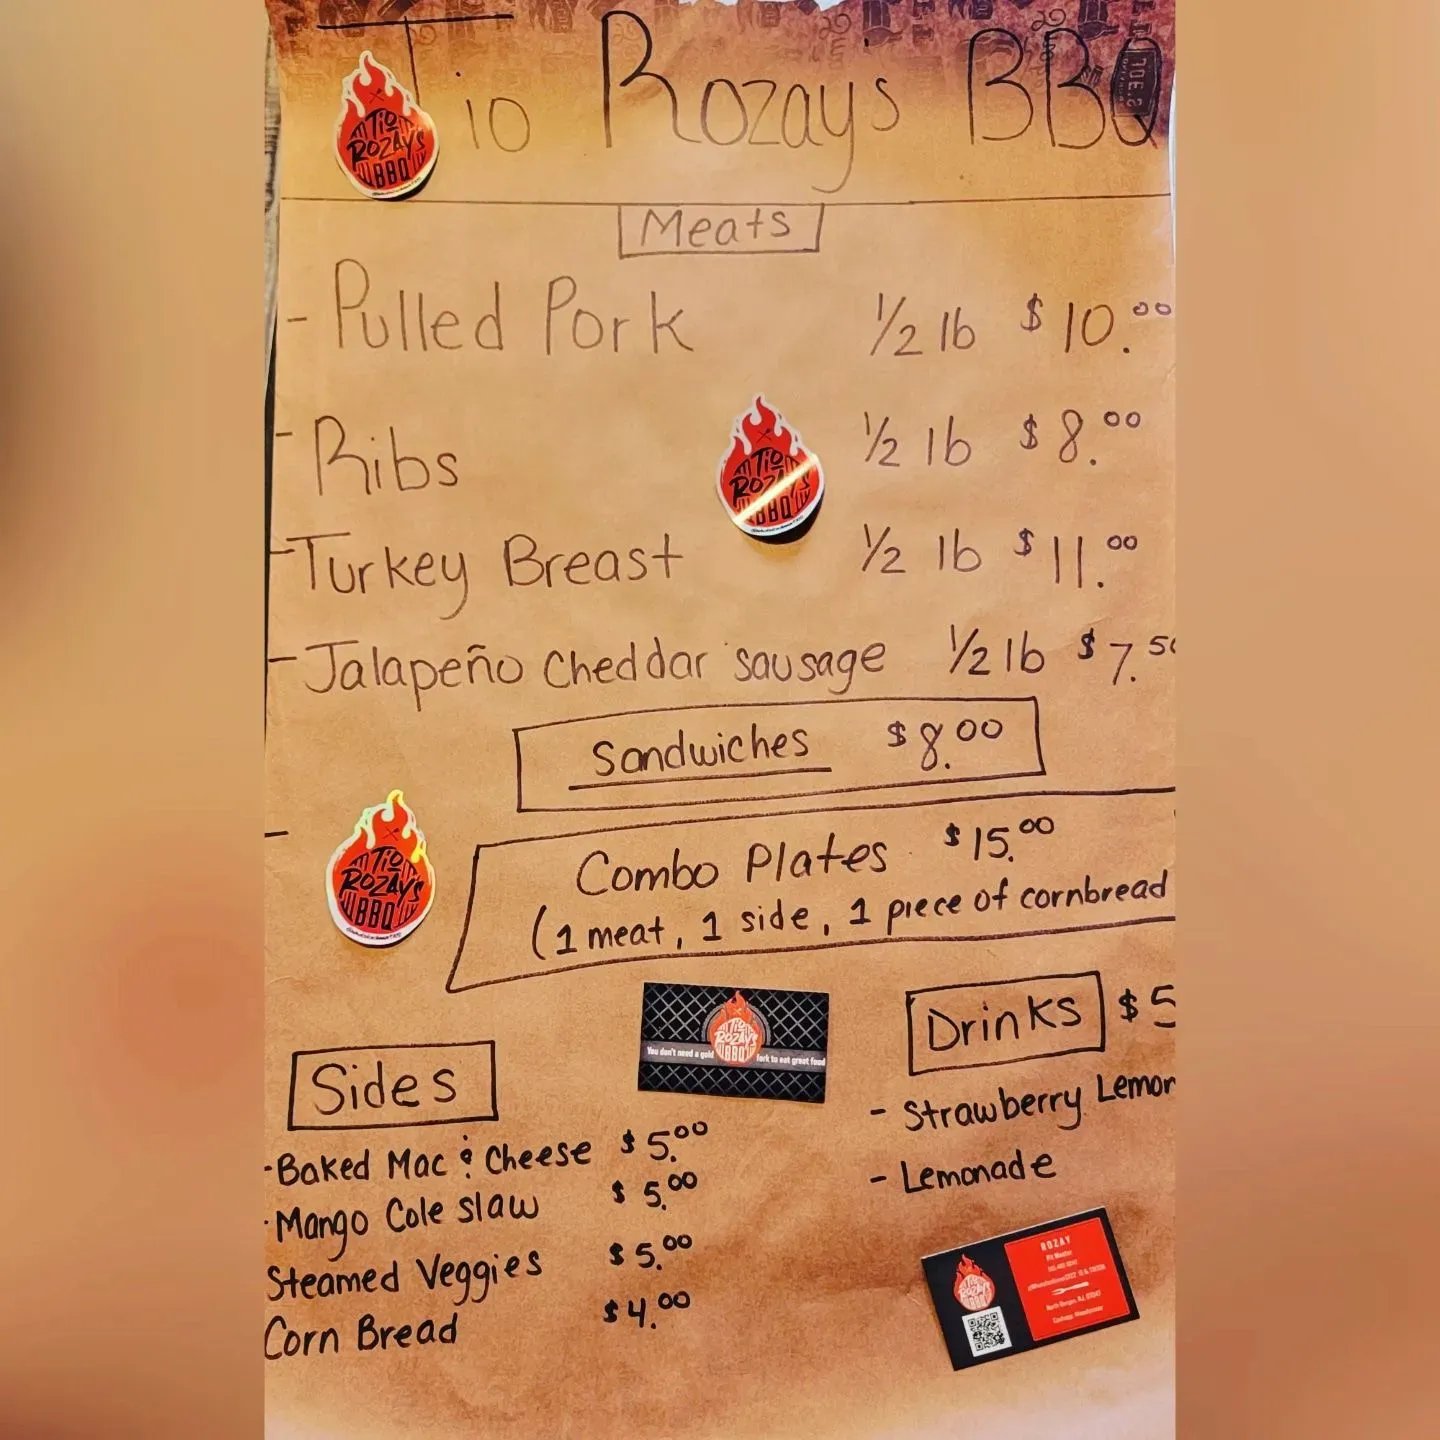 Tio Rozay's BBQ
JOE.S
TiO
ROZAY'S
BBQ
Meats
- Pulled Pork 1/2 lb $10.00
- Ribs 1/2 lb $8.00
TiO
ROZAY'S
BBQ
- Turkey Breast 1/2 lb $11.00
- Jalapeño Cheddar sausage 1/2 lb $7.50
Sandwiches $8.00
TiO
ROZAY'S
BBQ
Combo Plates $15.00
(1 meat, 1 side, 1 piece of cornbread
TiO
ROZAY'S
BBQ
You don't need a gold fork to eat great food
Drinks $5
- Strawberry Lemon
- Lemonade
Sides
- Baked Mac & Cheese $5.00
- Mango Cole slaw $5.00
Steamed Veggies $5.00
Corn Bread $4.00
ROZAY
Pit Master
North Bergen, N.J.